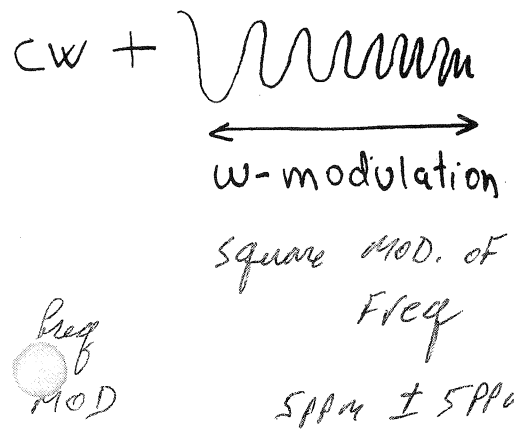 CW +
ω-modulation
square MOD. of
Freq
freq
MOD
5ppm ± 5ppm